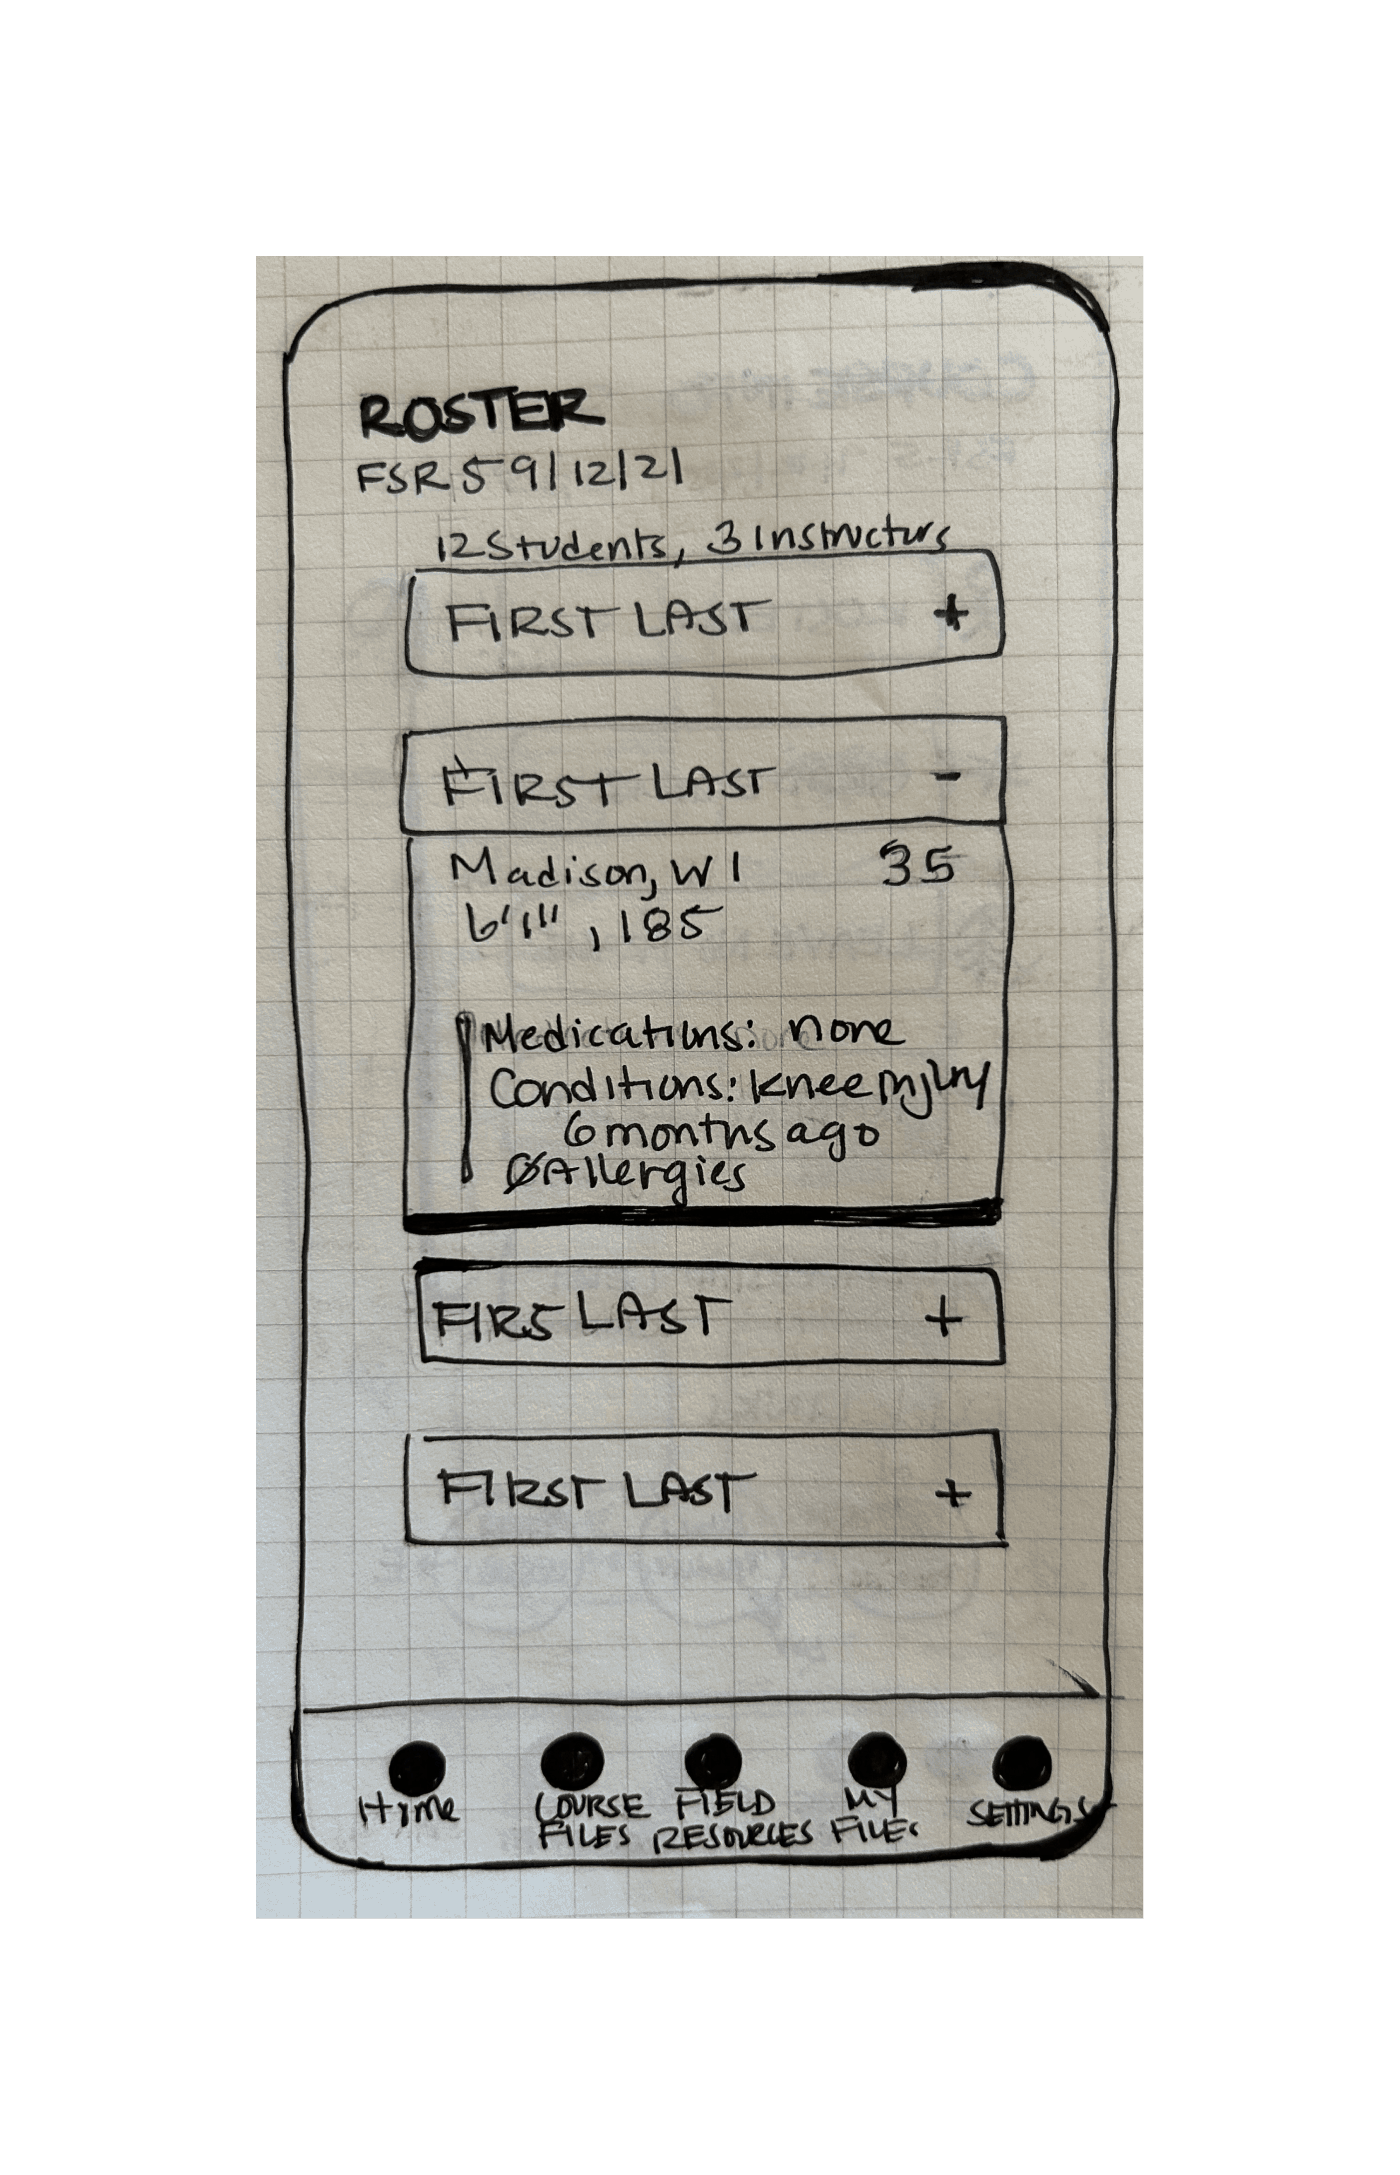 ROSTER
FSR 5 9/12/21
12 Students, 3 Instructors
FIRST LAST +
FIRST LAST -
Madison, WI 35
6'1", 185
Medications: none
Conditions: knee injury
6 months ago
Ø Allergies
FIRS LAST +
FIRST LAST +
Home
COURSE FILES
FIELD RESOURCES
MY FILES
SETTINGS